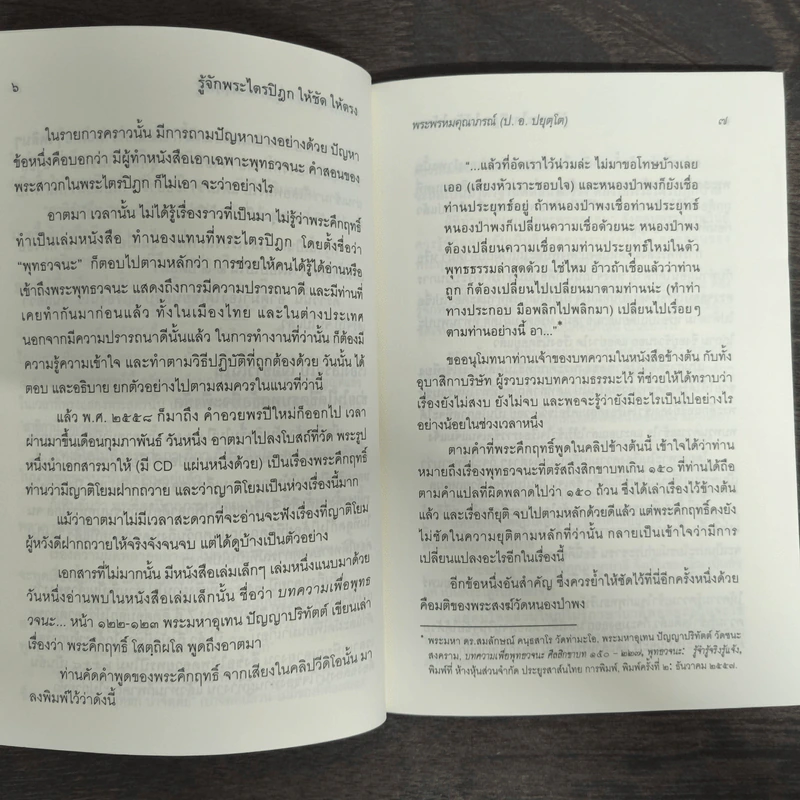 ๖
รู้จักพระไตรปิฎก ให้ชัด ให้ตรง
ในรายการคราวนั้น มีการถามปัญหาบางอย่างด้วย ปัญหา
ข้อหนึ่งคือบอกว่า มีผู้ทำหนังสือเอาเฉพาะพุทธวจนะ คำสอนของ
พระสาวกในพระไตรปิฎก ก็ไม่เอา จะว่าอย่างไร
อาตมา เวลานั้น ไม่ได้รู้เรื่องราวที่เป็นมา ไม่รู้ว่าพระคึกฤทธิ์
ทำเป็นเล่มหนังสือ ทำนองแทนที่พระไตรปิฎก โดยตั้งชื่อว่า
“พุทธวจนะ” ก็ตอบไปตามหลักว่า การช่วยให้คนได้รู้ได้อ่านหรือ
เข้าถึงพระพุทธวจนะ แสดงถึงการมีความปรารถนาดี และมีท่านที่
เคยทำกันมาก่อนแล้ว ทั้งในเมืองไทย และในต่างประเทศ
นอกจากมีความปรารถนาดีนั้นแล้ว ในการทำงานที่ว่านั้น ก็ต้องมี
ความรู้ความเข้าใจ และทำตามวิธีปฏิบัติที่ถูกต้องด้วย วันนั้น ได้
ตอบ และอธิบาย ยกตัวอย่างไปตามสมควรในแนวที่ว่านี้
แล้ว พ.ศ. ๒๕๕๘ ก็มาถึง คำอวยพรปีใหม่ก็ออกไป เวลา
ผ่านมาขึ้นเดือนกุมภาพันธ์ วันหนึ่ง อาตมาไปลงโบสถ์ที่วัด พระรูป
หนึ่งนำเอกสารมาให้ (มี CD แผ่นหนึ่งด้วย) เป็นเรื่องพระคึกฤทธิ์
ท่านว่ามีญาติโยมฝากถวาย และว่าญาติโยมเป็นห่วงเรื่องนี้มาก
แม้ว่าอาตมาไม่มีเวลาสะดวกที่จะอ่านจะฟังเรื่องที่ญาติโยม
ผู้หวังดีฝากถวายให้จริงจังจนจบ แต่ได้ดูบ้างเป็นตัวอย่าง
เอกสารที่ไม่มากนั้น มีหนังสือเล่มเล็กๆ เล่มหนึ่งแนบมาด้วย
วันหนึ่งอ่านพบในหนังสือเล่มเล็กนั้น ชื่อว่า บทความเพื่อพุทธ
วจนะ... หน้า ๑๒๒-๑๒๓ พระมหาอุเทน ปัญญาปริทัตต์ เขียนเล่า
เรื่องว่า พระคึกฤทธิ์ โสตฺถิผโล พูดถึงอาตมา
ท่านคัดคำพูดของพระคึกฤทธิ์ จากเสียงในคลิปวีดิโอนั้น มา
ลงพิมพ์ไว้ว่าดังนี้
พระพรหมคุณาภรณ์ (ป. อ. ปยุตฺโต)
๗
“...แล้วที่อัดเราไว้น่วมล่ะ ไม่มาขอโทษบ้างเลย
เออ (เสียงหัวเราะชอบใจ) และหนองป่าพงก็ยังเชื่อ
ท่านประยุทธ์อยู่ ถ้าหนองป่าพงเชื่อท่านประยุทธ์
หนองป่าพงก็เปลี่ยนความเชื่อด้วยนะ หนองป่าพง
ต้องเปลี่ยนความเชื่อตามท่านประยุทธ์ใหม่ในตัว
พุทธธรรมล่าสุดด้วย ใช่ไหม อ้าวถ้าเชื่อแล้วว่าท่าน
ถูก ก็ต้องเปลี่ยนไปเปลี่ยนมาตามท่านน่ะ (ทำท่า
ทางประกอบ มือพลิกไปพลิกมา) เปลี่ยนไปเรื่อยๆ
ตามท่านอย่างนี้ อา...”*
ขออนุโมทนาท่านเจ้าของบทความในหนังสือข้างต้น กับทั้ง
อุบาสิกาบริษัท ผู้รวบรวมบทความธรรมะไว้ ที่ช่วยให้ได้ทราบว่า
เรื่องยังไม่สงบ ยังไม่จบ และพอจะรู้ว่ายังมีอะไรเป็นไปอย่างไร
อย่างน้อยในช่วงเวลาหนึ่ง
ตามคำที่พระคึกฤทธิ์พูดในคลิปข้างต้นนี้ เข้าใจได้ว่าท่าน
หมายถึงเรื่องพุทธวจนะที่ตรัสถึงสิกขาบทเกิน ๑๕๐ ที่ท่านได้ถือ
ตามคำแปลที่ผิดพลาดไปว่า ๑๕๐ ถ้วน ซึ่งได้เล่าเรื่องไว้ข้างต้น
แล้ว และเรื่องก็ยุติ จบไปตามหลักด้วยดีแล้ว แต่พระคึกฤทธิ์คงยัง
ไม่ชัดในความยุติตามหลักที่ว่านั้น กลายเป็นเข้าใจว่ามีการ
เปลี่ยนแปลงอะไรอีกในเรื่องนี้
อีกข้อหนึ่งอันสำคัญ ซึ่งควรย้ำให้ชัดไว้ที่นี่อีกครั้งหนึ่งด้วย
คือมติของพระสงฆ์วัดหนองป่าพง
* พระมหา ดร.สมลักษณ์ คนฺธสาโร วัดท่ามะโอ, พระมหาอุเทน ปัญญาปริทัตต์ วัดชนะ
สงคราม, บทความเพื่อพุทธวจนะ ศีลสิกขาบท ๑๕๐ - ๒๒๗, พุทธวจนะ: รู้จำรู้จริงรู้แจ้ง,
พิมพ์ที่ ห้างหุ้นส่วนจำกัด ประยูรสาส์นไทย การพิมพ์, พิมพ์ครั้งที่ ๒: ธันวาคม ๒๕๕๗.